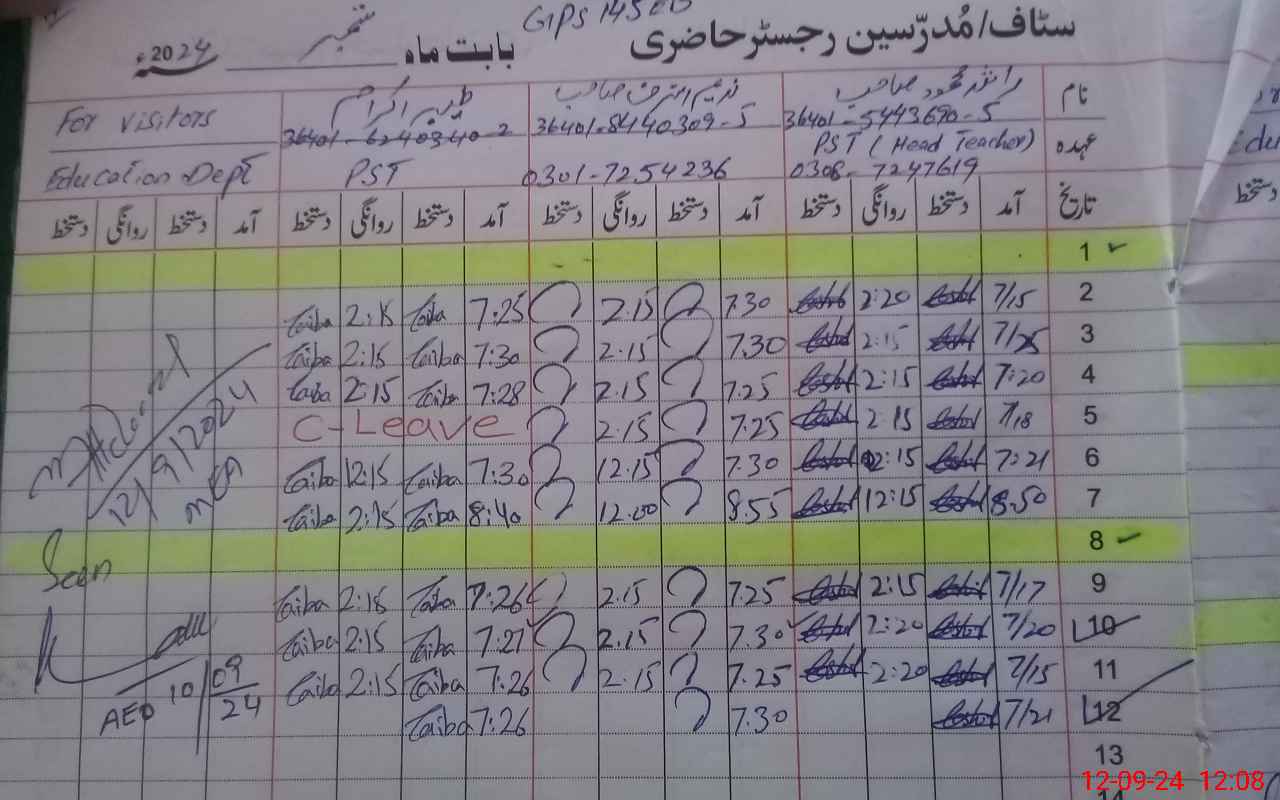 GIPS 145EB
سٹاف/مُدرّسین رجسٹر حاضری بابت ماہ ستمبر 2024ء
نام راشد محمود صاحب ندیم اشرف صاحب طیبہ اکرام For visitors
36401-5443690-5 36401-8440309-5 36401-6240340-2
عہدہ PST (Head Teacher) PST Education Dept
0308-7247619 0301-7254236
تاریخ آمد دستخط روانگی دستخط آمد دستخط روانگی دستخط آمد دستخط روانگی دستخط آمد دستخط روانگی دستخط
1
2 7/15 2:20 7.30 2.15 7:25 Taiba 2:15 Taiba
3 7/25 2:15 7.30 2.15 7:30 Taiba 2:15 Taiba
4 7:20 2:15 7.25 2.15 7:28 Taiba 2:15 Taiba
5 7/18 2:15 7.25 2.15 C-Leave
6 7:21 12:15 7.30 12.15 7:30 Taiba 12:15 Taiba
7 8:50 12:15 8.55 12.00 8:40 Taiba 2:15 Taiba
8
9 7/17 2:15 7.25 2.15 7:26 Taiba 2:15 Taiba
10 7/20 2:20 7.30 2.15 7:27 Taiba 2:15 Taiba
11 7/15 2:20 7.25 2.15 7:26 Taiba 2:15 Taiba
12 7/21 7.30 7:26 Taiba
13
14
12/9/2024
MEA
Seen
AEO 10/09/24
12-09-24 12:08